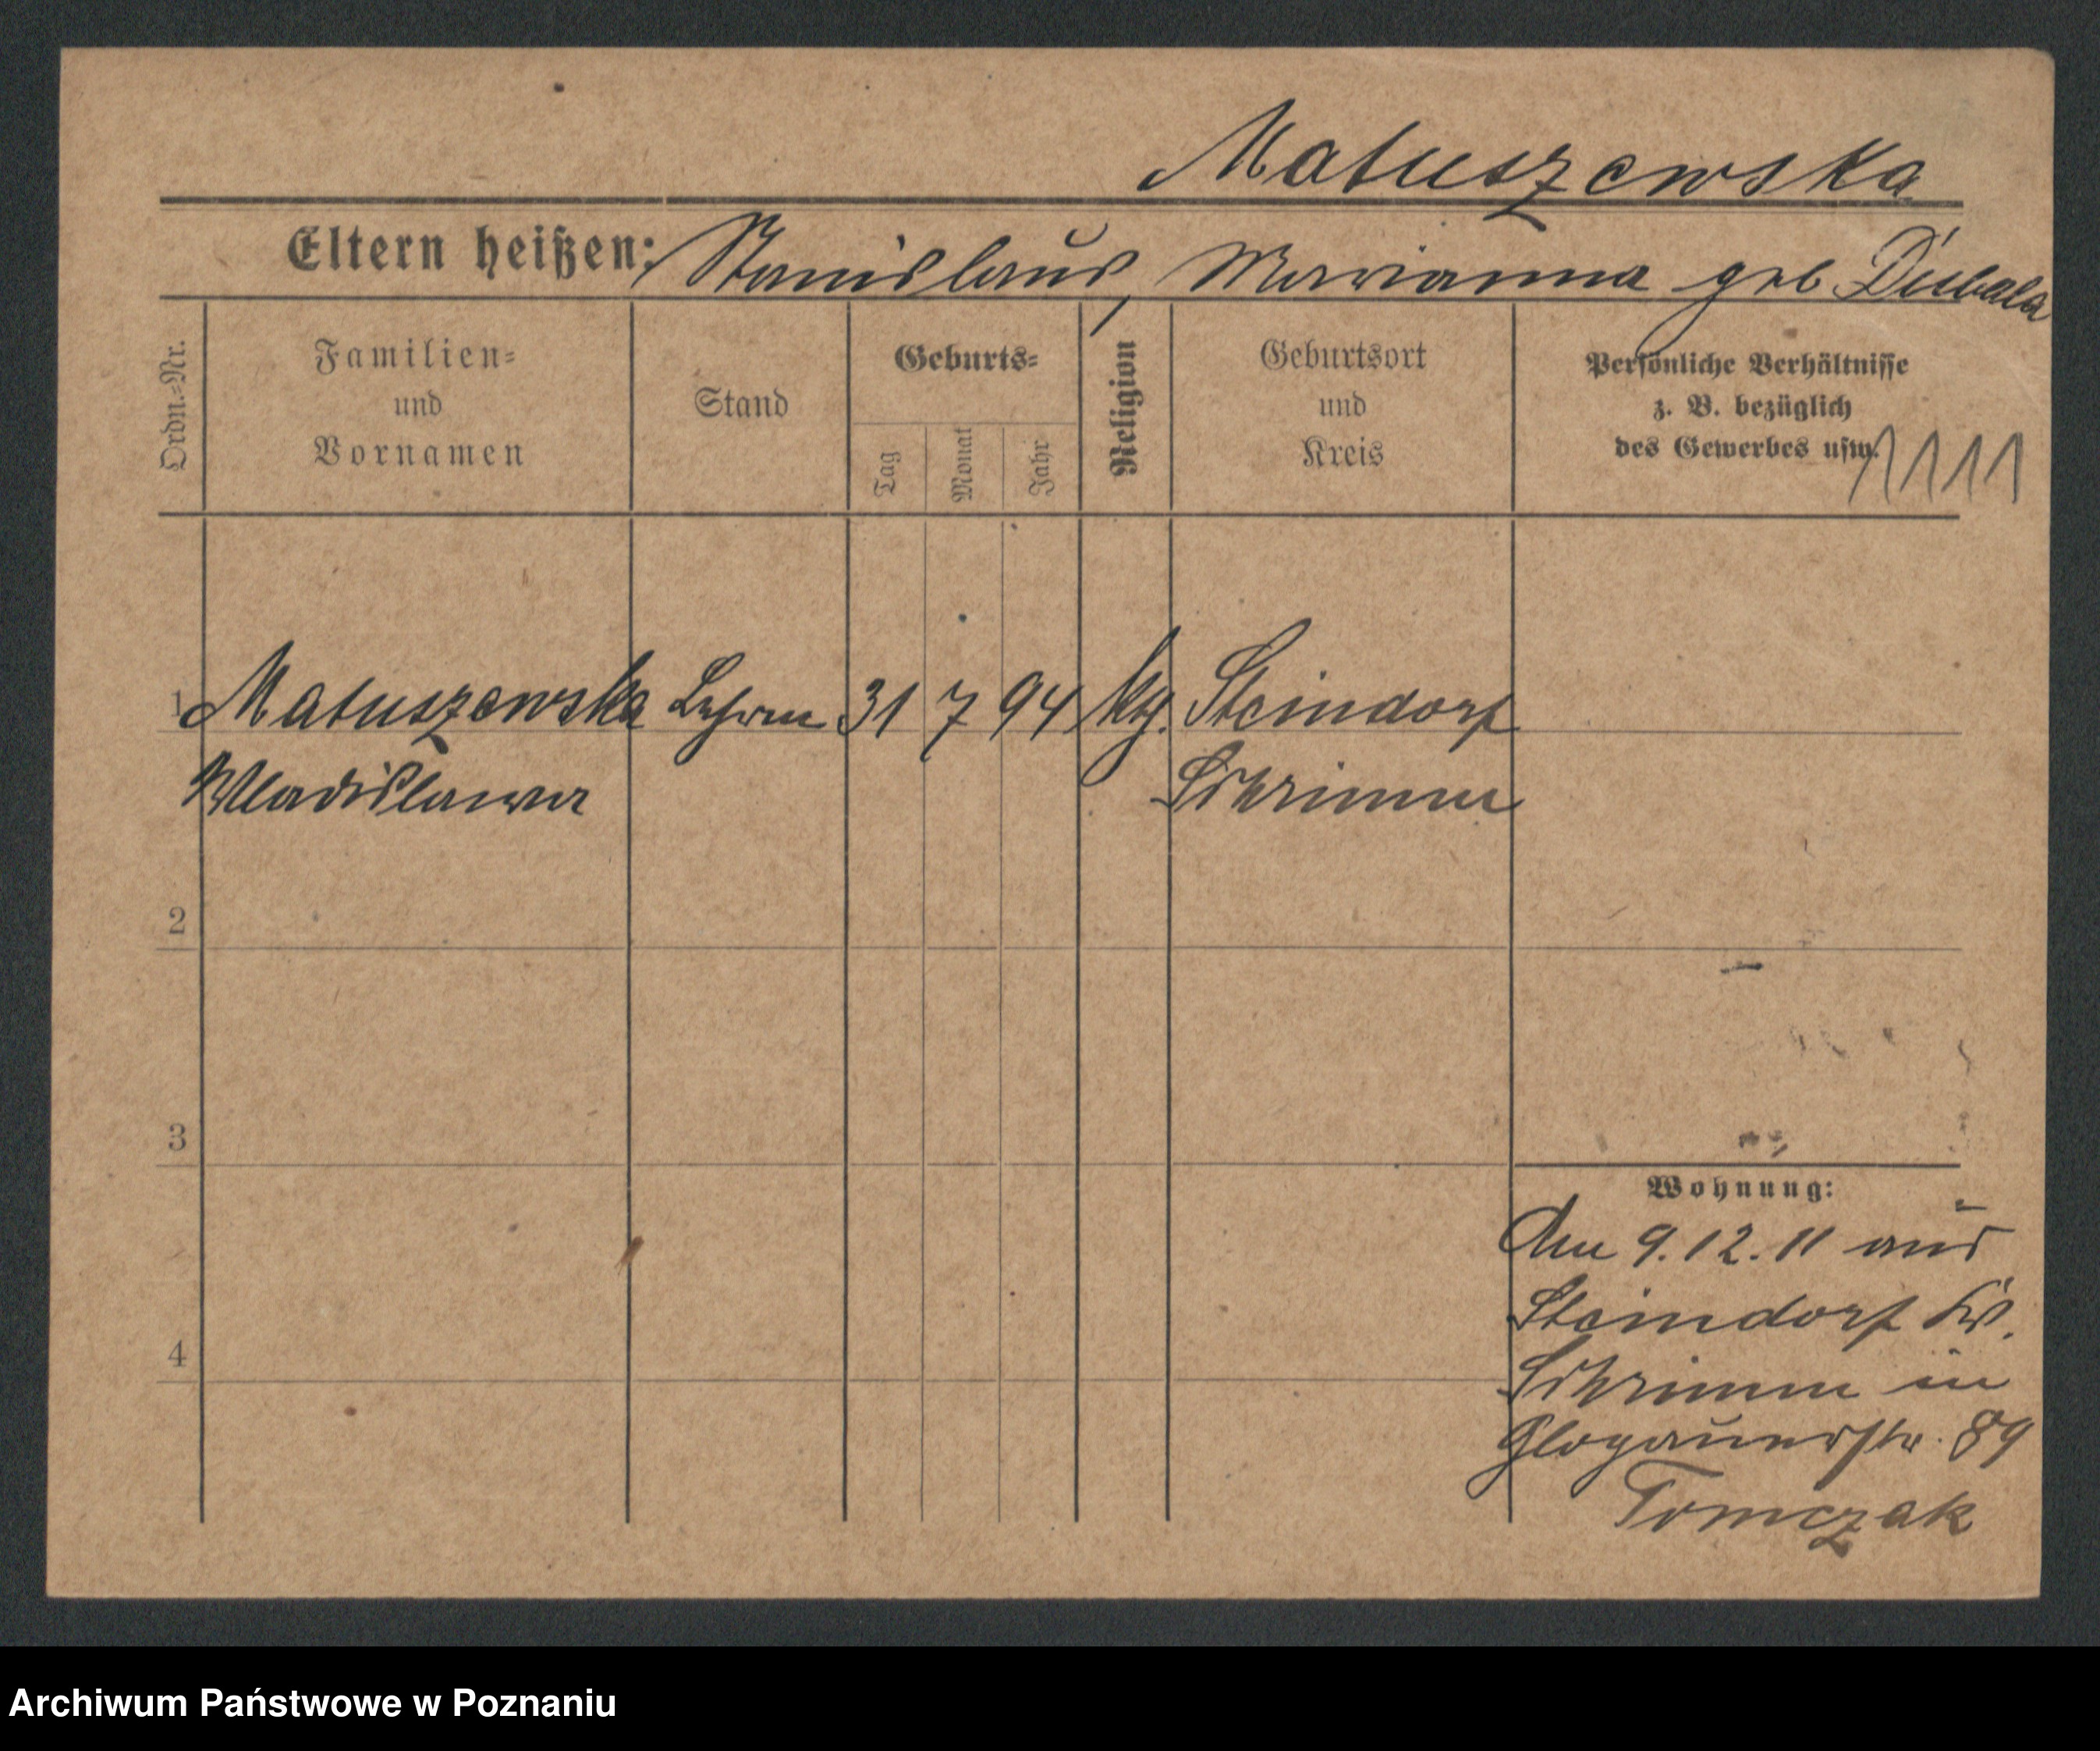 Matuszewska
Eltern heißen: Stanislaus, Marianna geb Dubala
Ordn.=Nr.
Familien=
und
Vornamen
Stand
Geburts=
Tag
Monat
Jahr
Religion
Geburtsort
und
Kreis
Persönliche Verhältnisse
z. B. bezüglich
des Gewerbes usw.
1 Matuszewska 31 7 94 Steindorf
Wladislawa Schrimm
2
3
4
Wohnung:
Am 9.12.11 aus
Steindorf Krs.
Schrimm in
Glogauerstr. 89
Tomczak
Archiwum Państwowe w Poznaniu